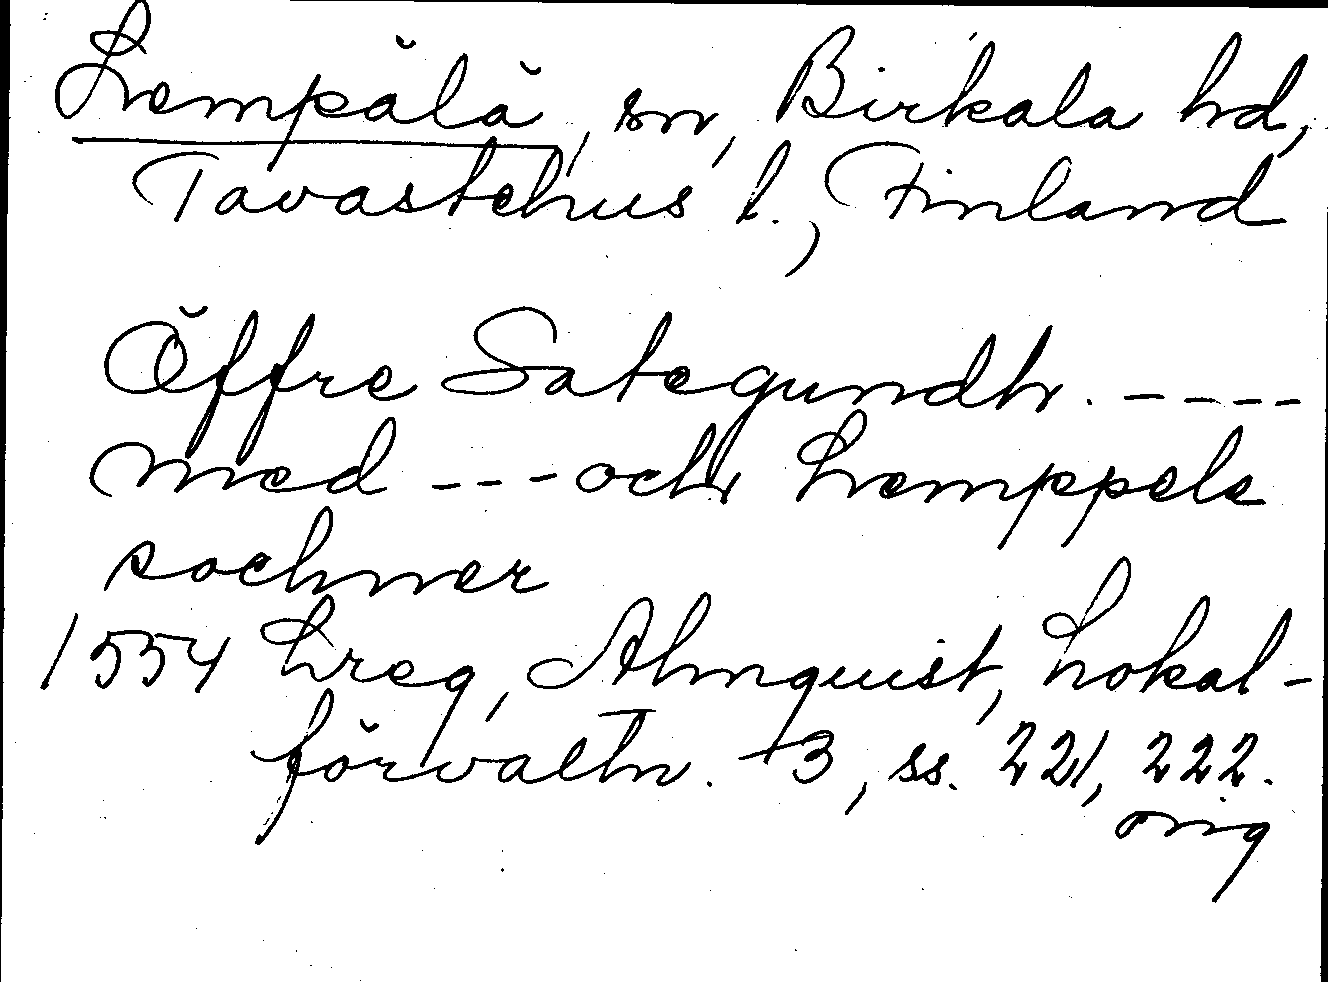 Lempälä, sn, Birkala hd,
Tavastehus l., Finland
Öffre Sategundh. ----
med --- och Lemppele
sochner
1554 Lreg, Almquist, Lokal-
förvaltn. 3, ss. 221, 222.
orig